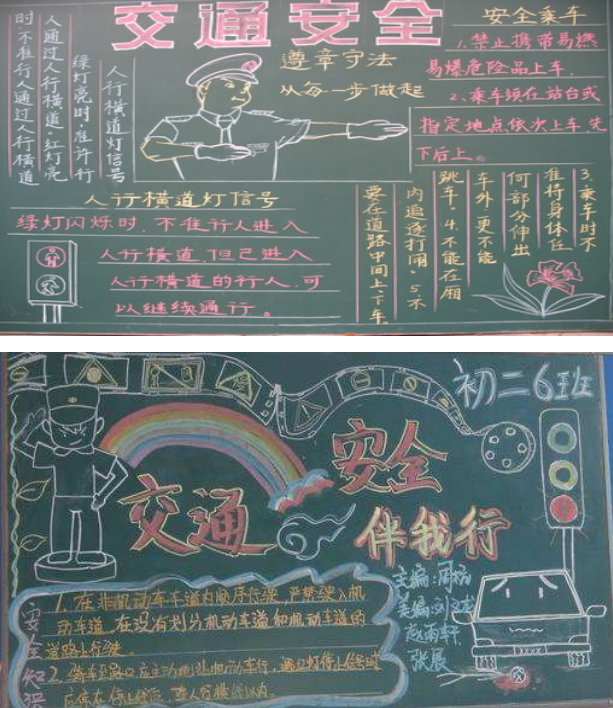 交通安全
人行横道灯信号
绿灯亮时,准许行
人通过人行横道。红灯亮
时,不准行人通过人行横道
遵章守法
从每一步做起
安全乘车
1.禁止携带易燃
易爆危险品上车.
2.乘车须在站台或
指定地点依次上车,先
下后上。
3.乘车时不
准将身体任
何部分伸出
车外,更不能
跳车.4.不能在厢
内追逐打闹.5.不
要在道路中间上、下车。
人行横道灯信号
绿灯闪烁时,不准行人进入
人行横道,但已进入
人行横道的行人,可
以继续通行。
初二6班
交通
安全
伴我行
安全知识
1.在非机动车车道内顺序行驶,严禁驶入机
动车道,在没有划分机动车道和机动车道的
道路上行驶.
2.骑车至路口应主动地让机动车行,遇红灯停止信号时
应停在停止线
主编:周
美编:刘文龙
赵雨轩
张晨